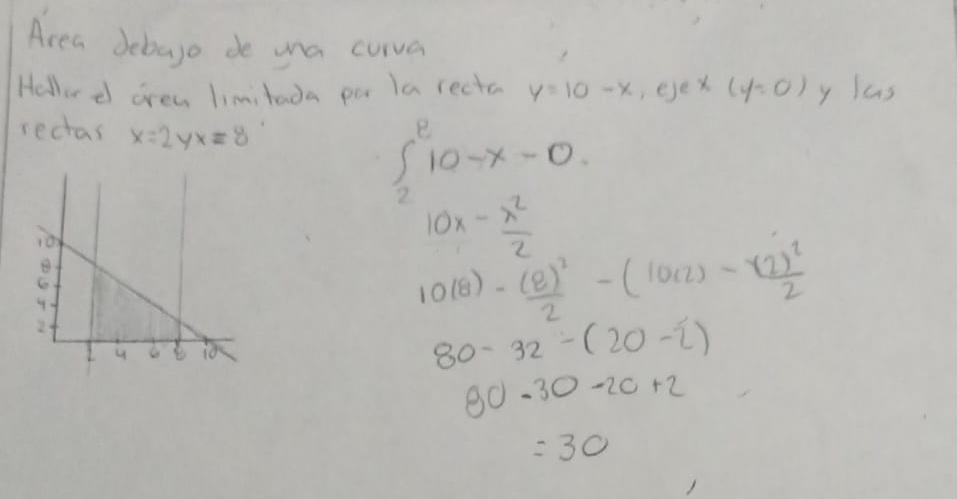 Área debajo de una curva
Hallar el área limitada por la recta y=10-x, eje x (y=0) y las
rectas x=2 y x=8
∫₂⁸ 10-x-0.
10x - x²/2
10(8) - (8)²/2 - (10(2) - (2)²/2
80 - 32 - (20 - 2)
80 - 30 - 20 + 2
= 30
10
8
6
4
2
2 4 6 8 10